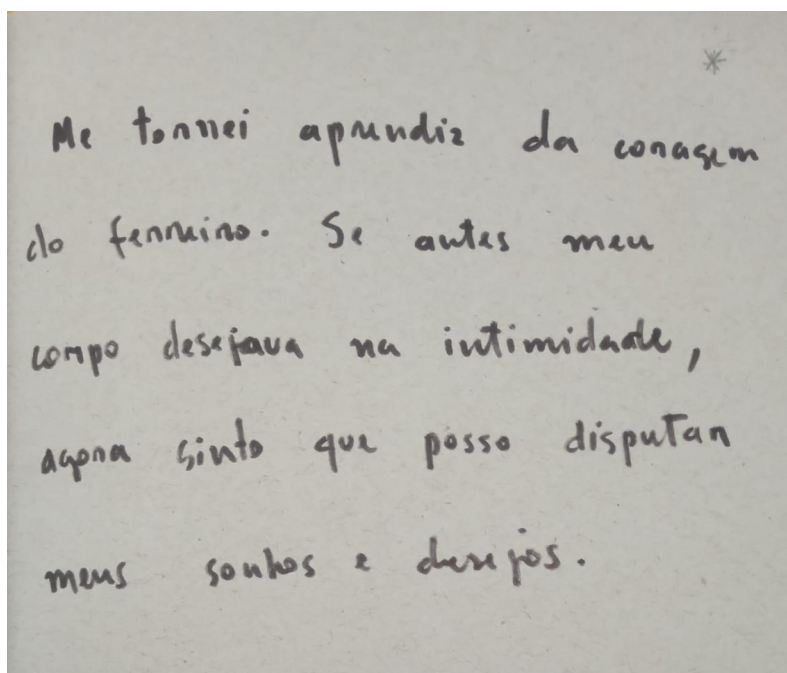 *
Me tornei aprendiz da coragem
do feminino. Se antes meu
corpo desejava na intimidade,
agora sinto que posso disputar
meus sonhos e desejos.